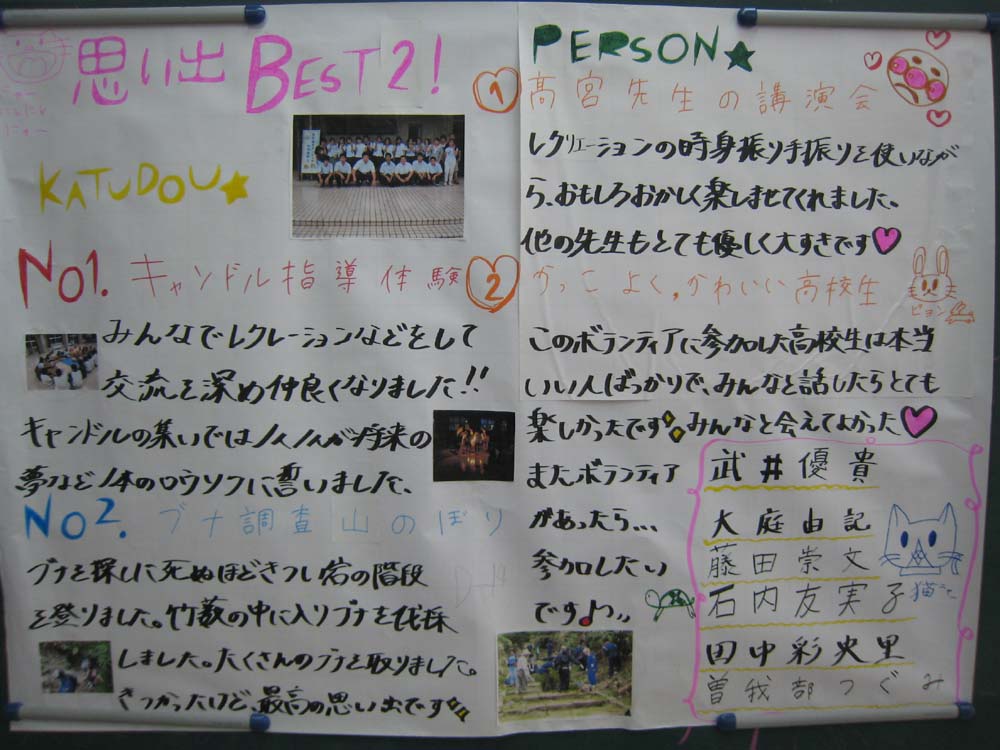 思い出 BEST2!
KATUDOU★
No1. キャンドル指導体験
みんなでレクレーションなどをして
交流を深め仲良くなりました!!
キャンドルの集いでは1人1人が将来の
夢など1本のロウソクに誓いました、
No2. ブナ調査山のぼり
ブナを探しに死ぬほどきつい岩の階段
を登りました。竹薮の中に入りブナを伐採
しました。たくさんのブナを取りました。
きつかったけど、最高の思い出です
PERSON★
① 高宮先生の講演会
レクリエーションの時身振り手振りを使いなが
ら、おもしろおかしく楽しませてくれました。
他の先生もとても優しく大すきです♥
② かっこよく,かわいい高校生
ピョン
このボランティアに参加した高校生は本当
いい人ばっかりで、みんなと話したらとても
楽しかったです みんなと会えてよかった♥
またボランティア
があったら...
参加したい
です♪
武井優貴
大庭由記
藤田崇文
石内友実子
田中彩央里
曽我部つぐみ